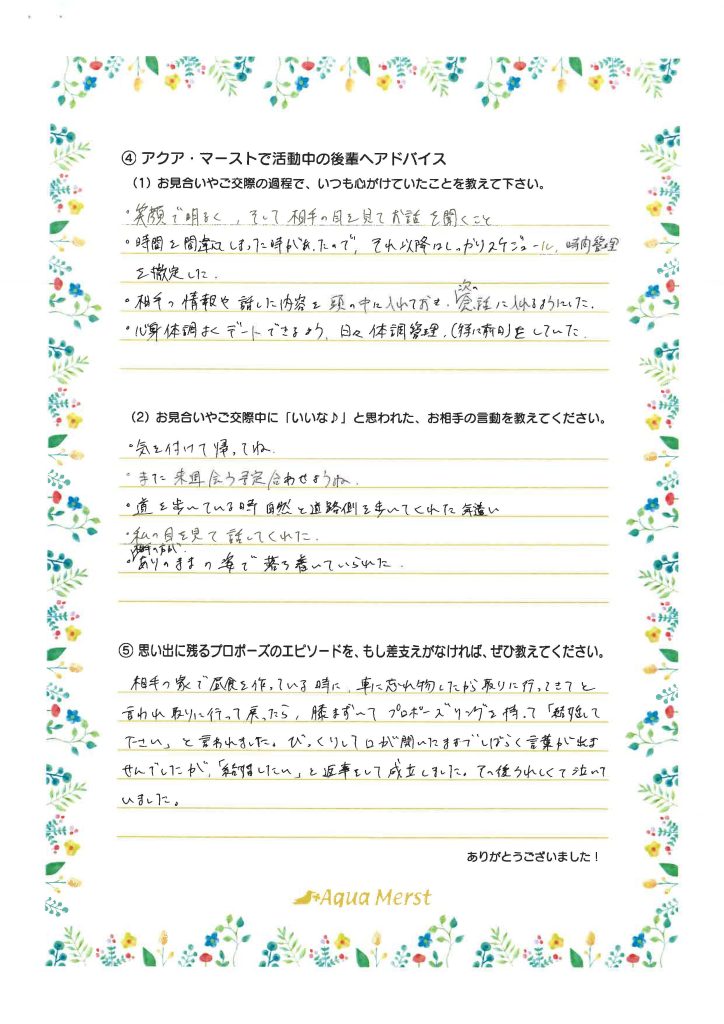 ④ アクア・マーストで活動中の後輩へアドバイス
（1）お見合いやご交際の過程で、いつも心がけていたことを教えて下さい。
・笑顔で明るく、そして相手の目を見てお話を聞くこと
・時間を間違えしまった時があったので、それ以降はしっかりスケジュール、時間管理
を徹定した.
次の
・相手の情報や話した内容を頭の中に入れておき、会話に入れるようにした.
・心身体調よくデートできるよう、日々体調管理.(特に前日)をしていた.
（2）お見合いやご交際中に「いいな♪」と思われた、お相手の言動を教えてください。
・気を付けて帰ってね.
・また来週会う予定合わせようね.
・道を歩いている時自然と道路側を歩いてくれた気遣い
・私の目を見て話してくれた.
・ありのままの姿で落ち着いていられた.
⑤ 思い出に残るプロポーズのエピソードを、もし差支えがなければ、ぜひ教えてください。
相手の家で昼食を作っている時に、車に忘れ物したから取りに行ってきてと
言われ取りに行って戻ったら、膝まずいてプロポーズリングを持って「結婚して
下さい」と言われました。びっくりして口が開いたままでしばらく言葉が出ま
せんでしたが、「結婚したい」と返事をして成立しました。その後うれしくて泣いて
いました。
ありがとうございました！
Aqua Merst